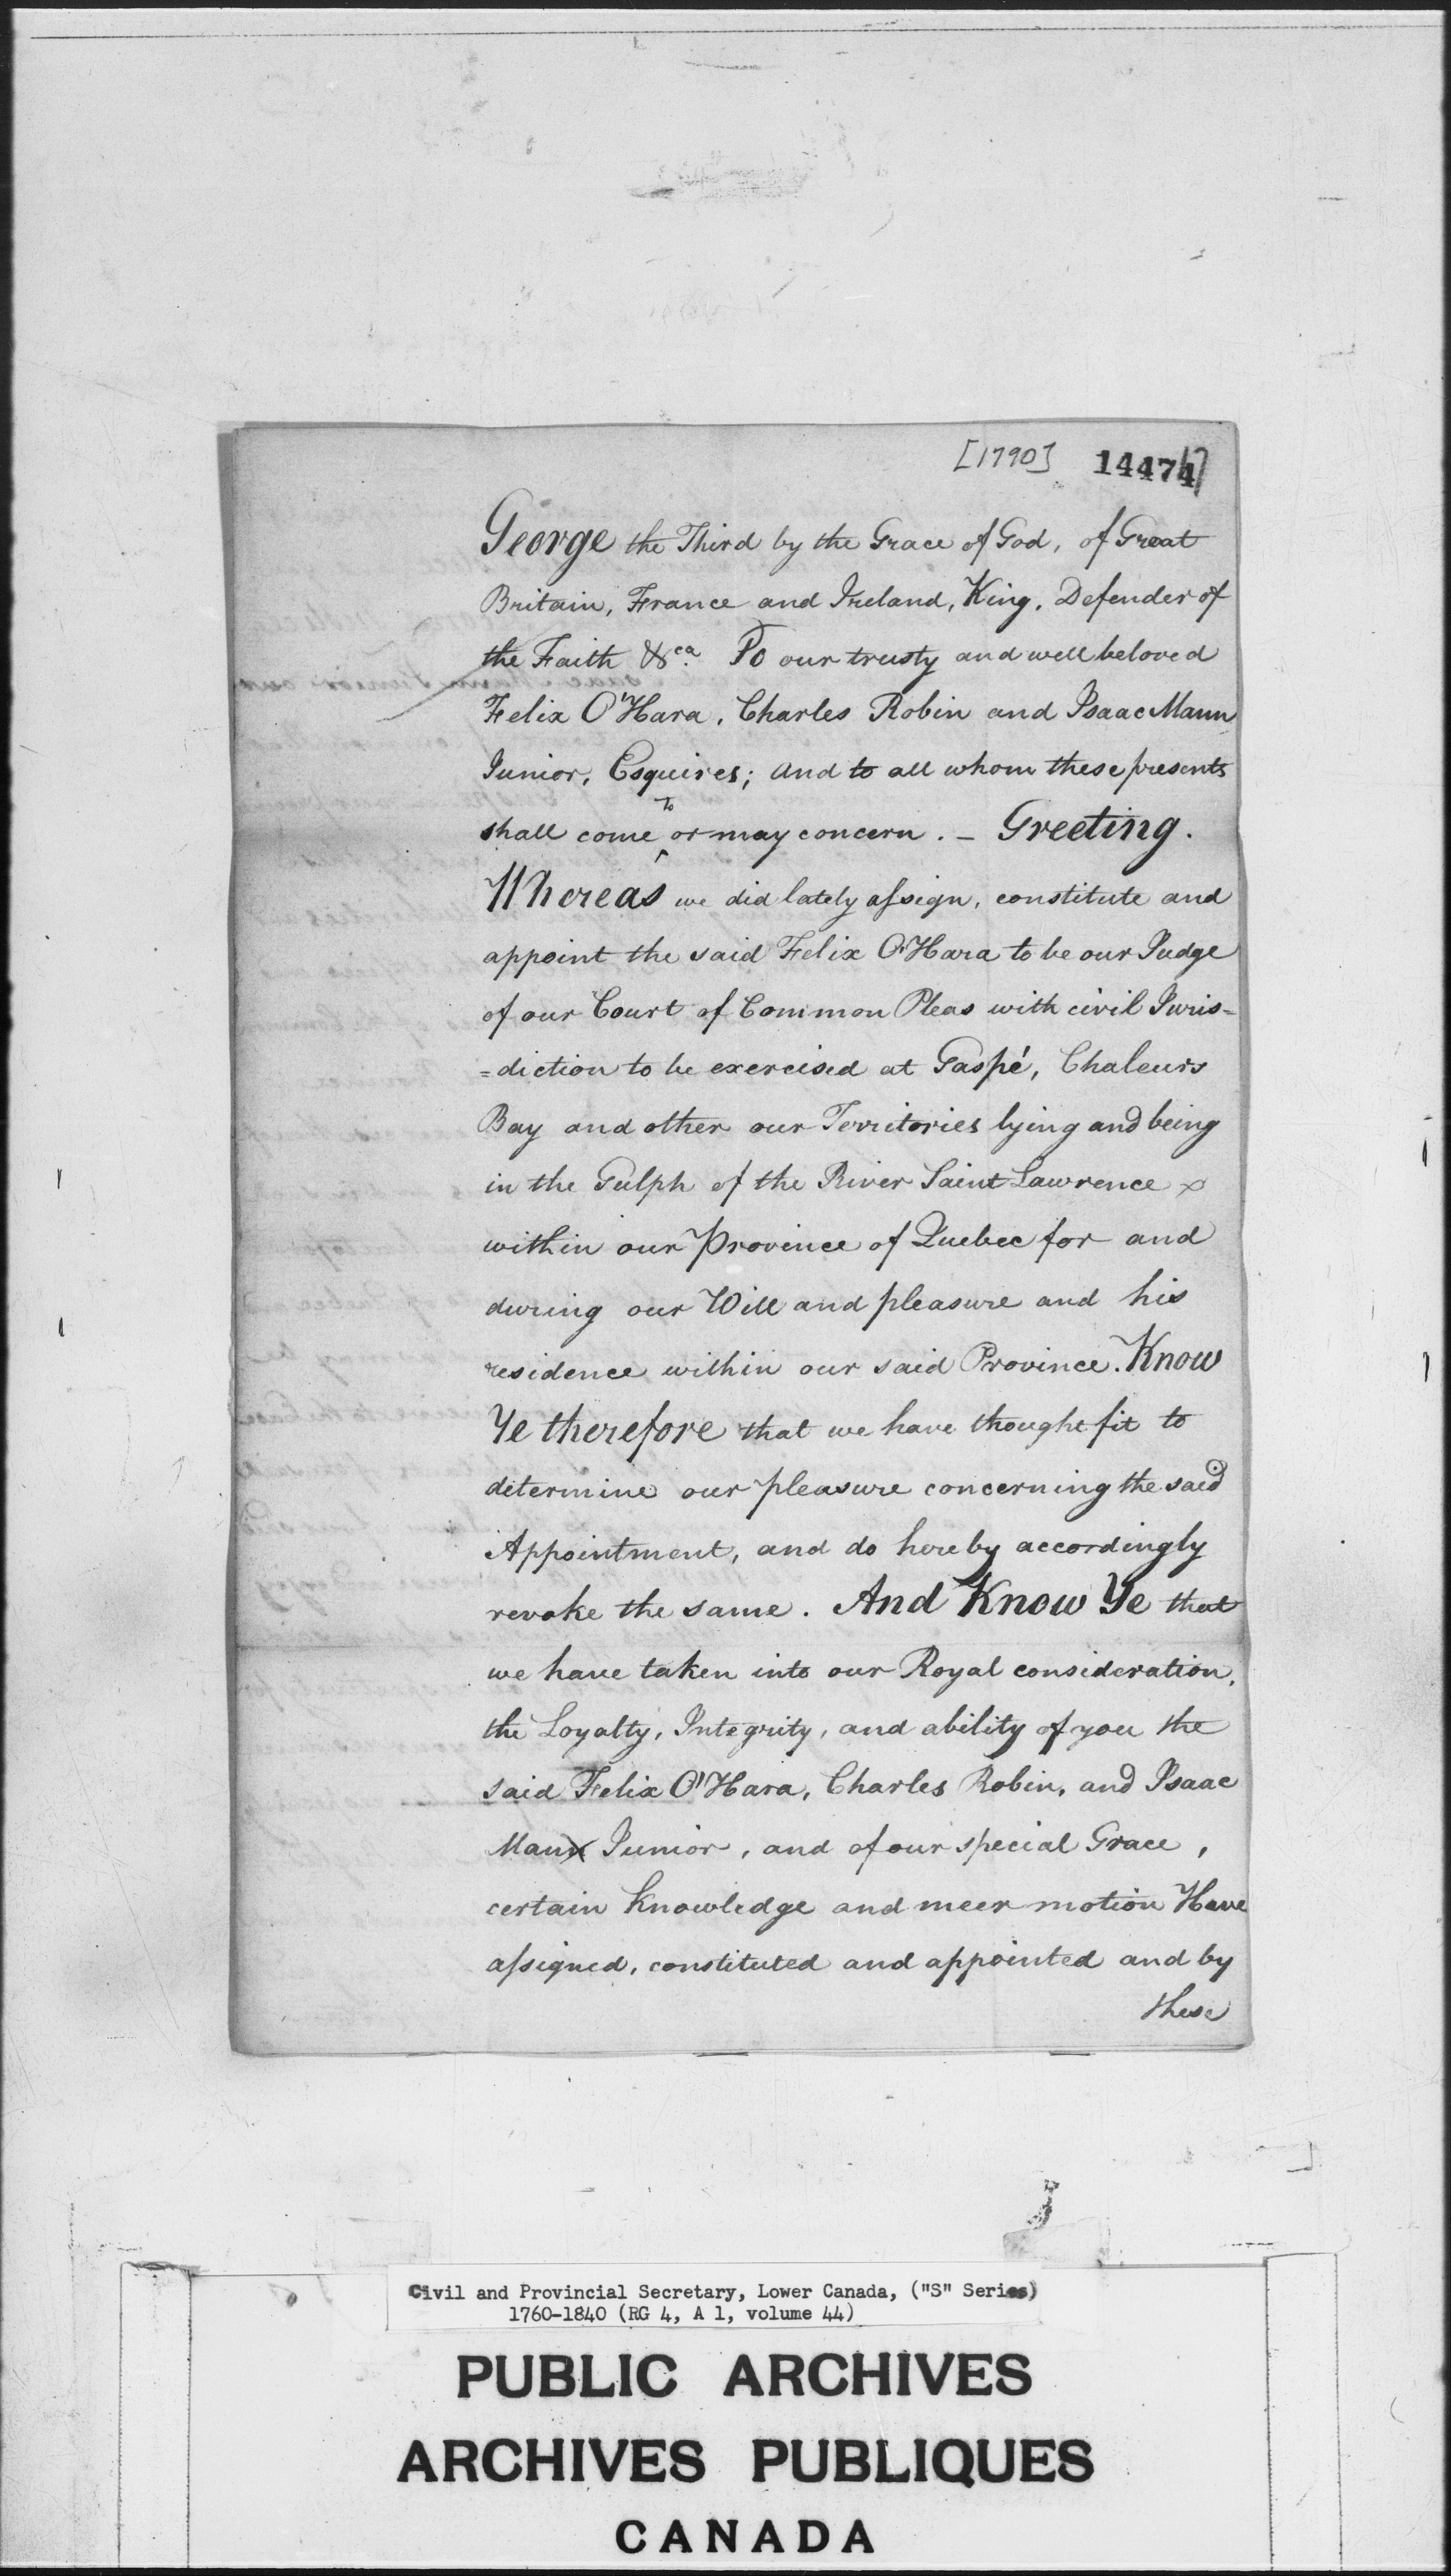 [1790] 14474
George the Third by the Grace of God, of Great
Britain, France and Ireland, King, Defender of
the Faith &ca. To our trusty and well beloved
Felix O'Hara, Charles Robin and Isaac Mann
Junior, Esquires; and to all whom these presents
shall come To or may concern. – Greeting.
Whereas we did lately assign, constitute and
appoint the said Felix O'Hara to be our Judge
of our Court of Common Pleas with civil Juris=
=diction to be exercised at Gaspé, Chaleurs
Bay and other our Territories lying and being
in the Gulph of the River Saint Lawrence &
within our Province of Quebec for and
during our Will and pleasure and his
residence within our said Province. Know
Ye therefore that we have thought fit to
determine our pleasure concerning the said
Appointment, and do hereby accordingly
revoke the same. And Know Ye that
we have taken into our Royal consideration,
the Loyalty, Integrity, and ability of you the
said Felix O'Hara, Charles Robin, and Isaac
Mann Junior, and of our special Grace,
certain knowledge and meer motion Have
assigned, constituted and appointed and by
these
Civil and Provincial Secretary, Lower Canada, ("S" Series)
1760-1840 (RG 4, A 1, volume 44)
PUBLIC ARCHIVES
ARCHIVES PUBLIQUES
CANADA